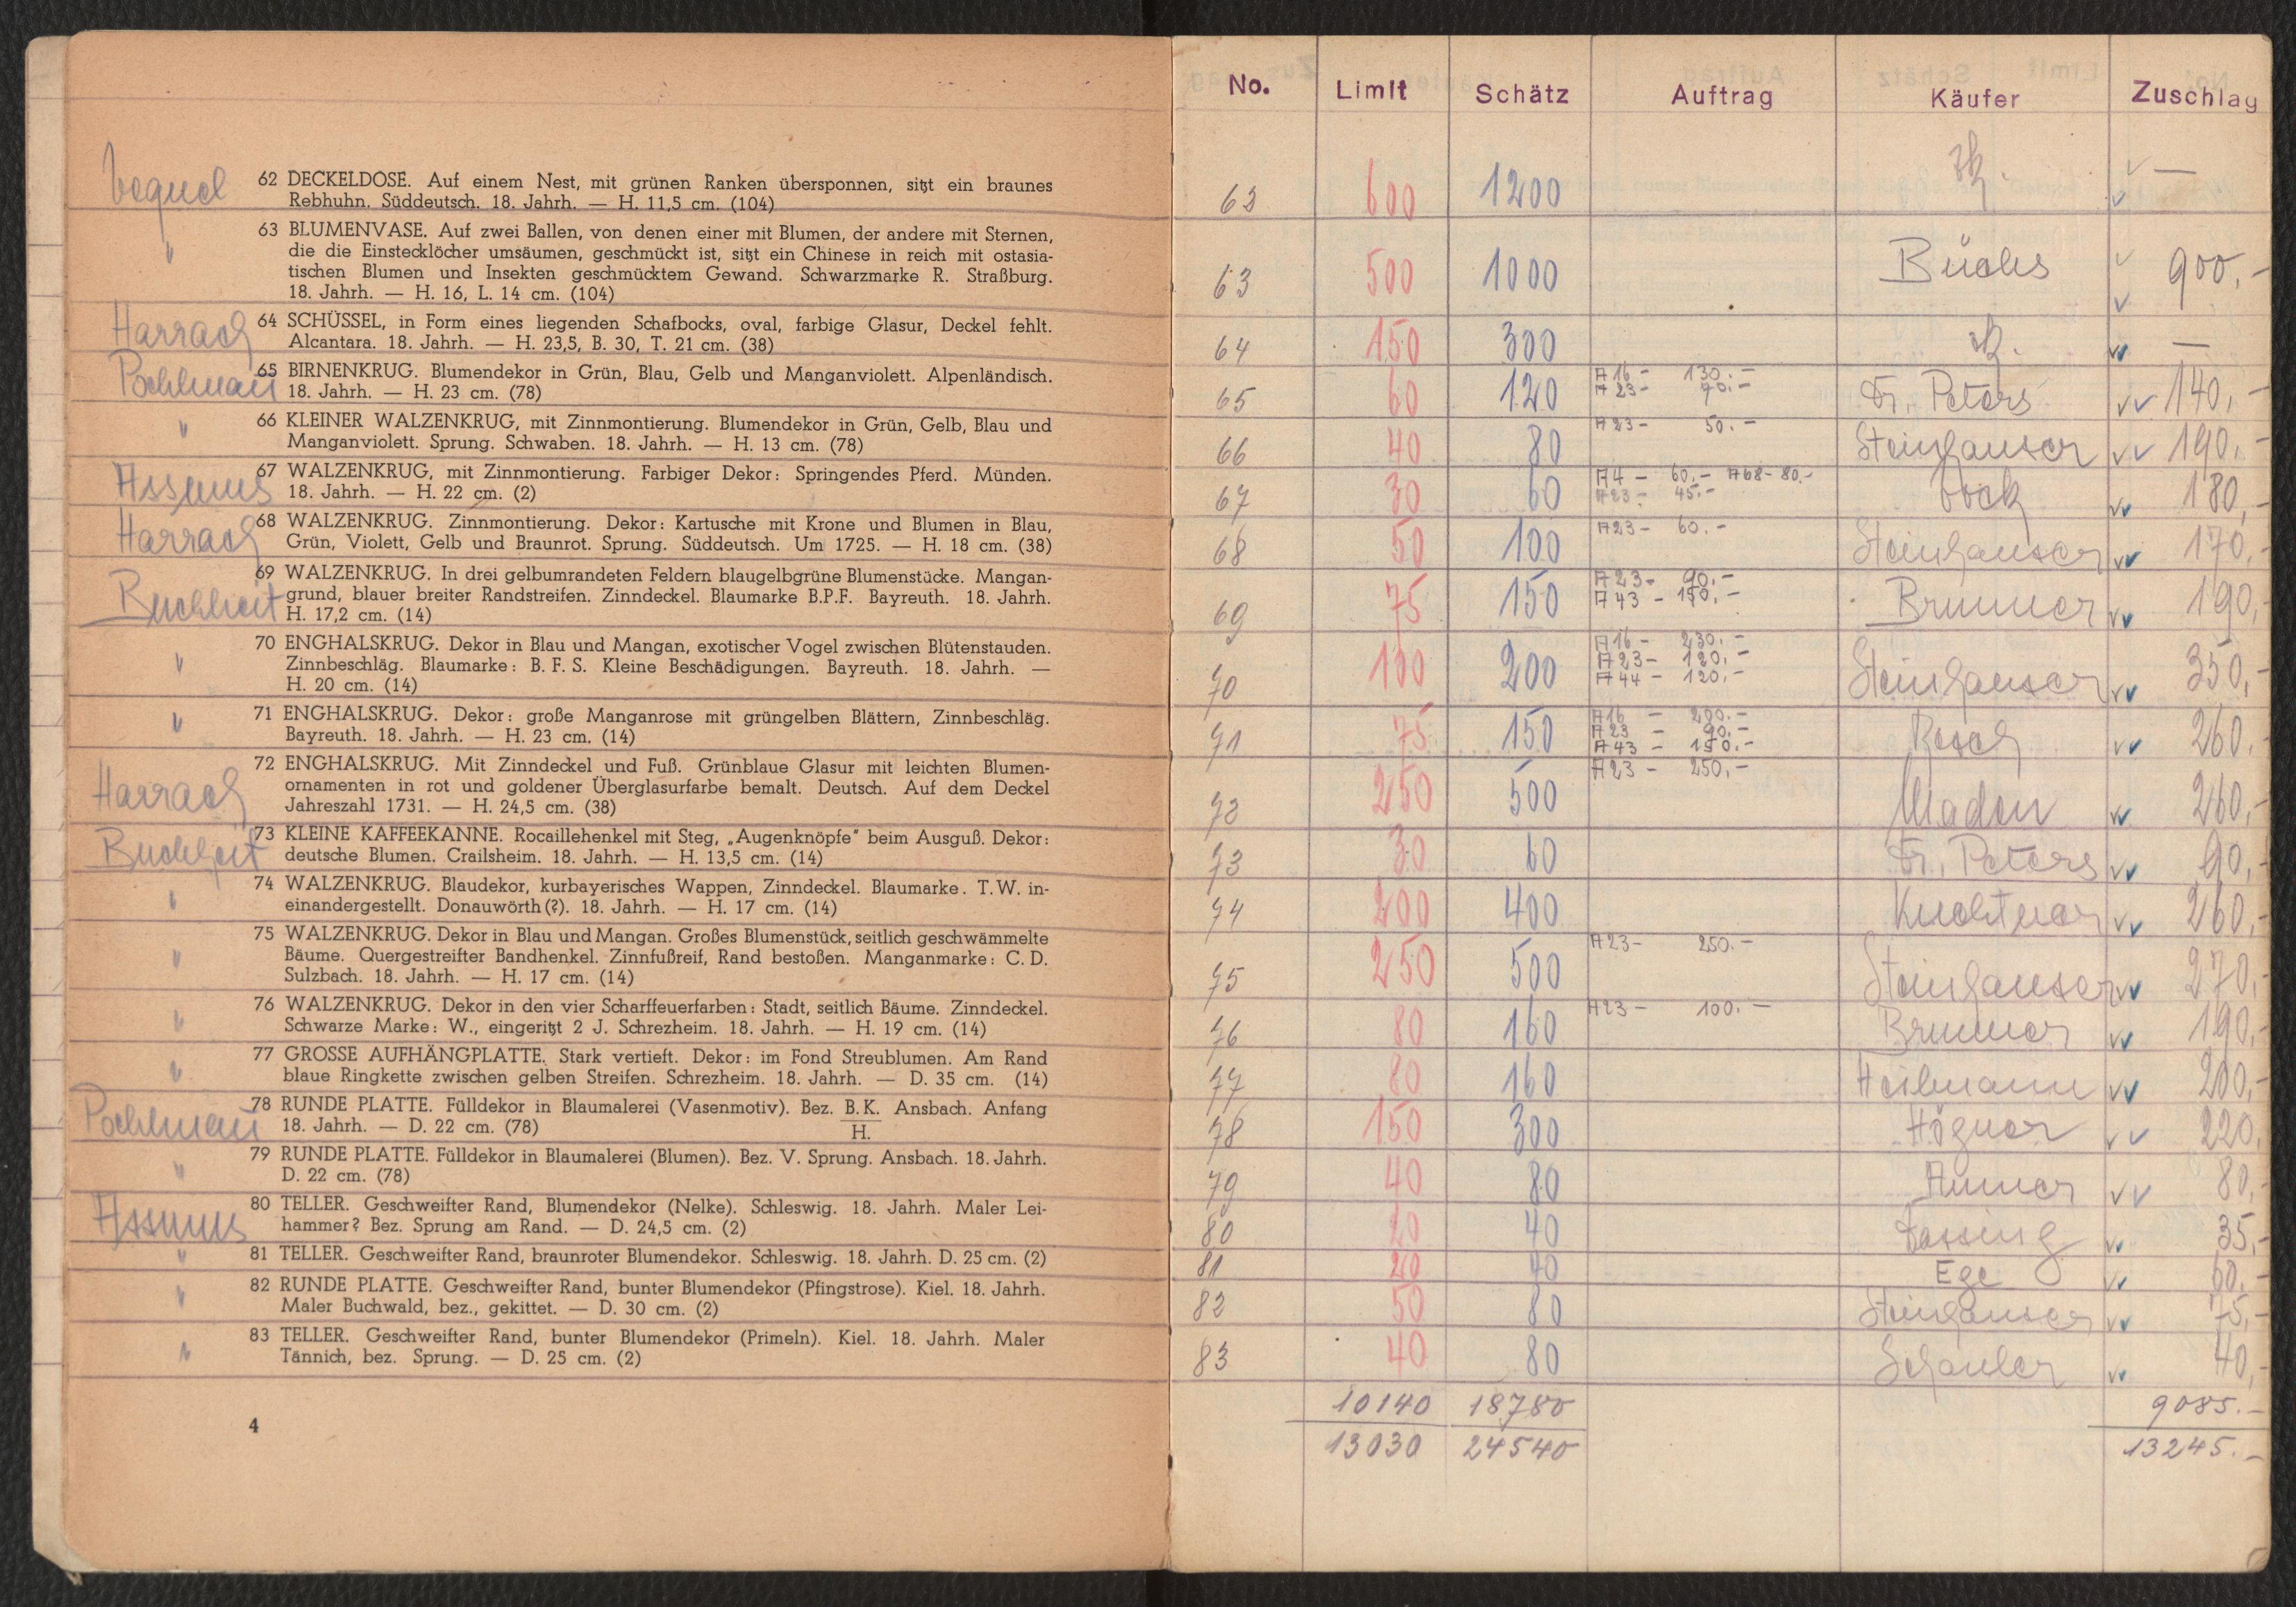 Vequel
62 DECKELDOSE. Auf einem Nest, mit grünen Ranken übersponnen, sitzt ein braunes
Rebhuhn. Süddeutsch. 18. Jahrh. — H. 11,5 cm. (104)
"
63 BLUMENVASE. Auf zwei Ballen, von denen einer mit Blumen, der andere mit Sternen,
die die Einstecklöcher umsäumen, geschmückt ist, sitzt ein Chinese in reich mit ostasia-
tischen Blumen und Insekten geschmücktem Gewand. Schwarzmarke R. Straßburg.
18. Jahrh. — H. 16, L. 14 cm. (104)
Harrach
64 SCHÜSSEL, in Form eines liegenden Schafbocks, oval, farbige Glasur, Deckel fehlt.
Alcantara. 18. Jahrh. — H. 23,5, B. 30, T. 21 cm. (38)
Pöhlmann
65 BIRNENKRUG. Blumendekor in Grün, Blau, Gelb und Manganviolett. Alpenländisch.
18. Jahrh. — H. 23 cm. (78)
"
66 KLEINER WALZENKRUG, mit Zinnmontierung. Blumendekor in Grün, Gelb, Blau und
Manganviolett. Sprung. Schwaben. 18. Jahrh. — H. 13 cm. (78)
Assmus
67 WALZENKRUG, mit Zinnmontierung. Farbiger Dekor: Springendes Pferd. Münden.
18. Jahrh. — H. 22 cm. (2)
Harrach
68 WALZENKRUG. Zinnmontierung. Dekor: Kartusche mit Krone und Blumen in Blau,
Grün, Violett, Gelb und Braunrot. Sprung. Süddeutsch. Um 1725. — H. 18 cm. (38)
Buchheit
69 WALZENKRUG. In drei gelbumrandeten Feldern blaugelbgrüne Blumenstücke. Mangan-
grund, blauer breiter Randstreifen. Zinndeckel. Blaumarke B.P.F. Bayreuth. 18. Jahrh.
H. 17,2 cm. (14)
"
70 ENGHALSKRUG. Dekor in Blau und Mangan, exotischer Vogel zwischen Blütenstauden.
Zinnbeschläg. Blaumarke: B. F. S. Kleine Beschädigungen. Bayreuth. 18. Jahrh. —
H. 20 cm. (14)
"
71 ENGHALSKRUG. Dekor: große Manganrose mit grüngelben Blättern, Zinnbeschläg.
Bayreuth. 18. Jahrh. — H. 23 cm. (14)
Harrach
72 ENGHALSKRUG. Mit Zinndeckel und Fuß. Grünblaue Glasur mit leichten Blumen-
ornamenten in rot und goldener Überglasurfarbe bemalt. Deutsch. Auf dem Deckel
Jahreszahl 1731. — H. 24,5 cm. (38)
Buchheit
73 KLEINE KAFFEEKANNE. Rocaillehenkel mit Steg, „Augenknöpfe" beim Ausguß. Dekor:
deutsche Blumen. Crailsheim. 18. Jahrh. — H. 13,5 cm. (14)
"
74 WALZENKRUG. Blaudekor, kurbayerisches Wappen, Zinndeckel. Blaumarke. T.W. in-
einandergestellt. Donauwörth (?). 18. Jahrh. — H. 17 cm. (14)
"
75 WALZENKRUG. Dekor in Blau und Mangan. Großes Blumenstück, seitlich geschwämmelte
Bäume. Quergestreifter Bandhenkel. Zinnfußreif, Rand bestoßen. Manganmarke: C. D.
Sulzbach. 18. Jahrh. — H. 17 cm. (14)
"
76 WALZENKRUG. Dekor in den vier Scharffeuerfarben: Stadt, seitlich Bäume. Zinndeckel.
Schwarze Marke: W., eingeritzt 2 J. Schrezheim. 18. Jahrh. — H. 19 cm. (14)
"
77 GROSSE AUFHÄNGPLATTE. Stark vertieft. Dekor: im Fond Streublumen. Am Rand
blaue Ringkette zwischen gelben Streifen. Schrezheim. 18. Jahrh. — D. 35 cm. (14)
Pöhlmann
78 RUNDE PLATTE. Fülldekor in Blaumalerei (Vasenmotiv). Bez. B. K. Ansbach. Anfang
18. Jahrh. — D. 22 cm. (78) H.
"
79 RUNDE PLATTE. Fülldekor in Blaumalerei (Blumen). Bez. V. Sprung. Ansbach. 18. Jahrh.
D. 22 cm. (78)
Assmus
80 TELLER. Geschweifter Rand, Blumendekor (Nelke). Schleswig. 18. Jahrh. Maler Lei-
hammer? Bez. Sprung am Rand. — D. 24,5 cm. (2)
"
81 TELLER. Geschweifter Rand, braunroter Blumendekor. Schleswig. 18. Jahrh. D. 25 cm. (2)
"
82 RUNDE PLATTE. Geschweifter Rand, bunter Blumendekor (Pfingstrose). Kiel. 18. Jahrh.
Maler Buchwald, bez., gekittet. — D. 30 cm. (2)
"
83 TELLER. Geschweifter Rand, bunter Blumendekor (Primeln). Kiel. 18. Jahrh. Maler
Tännich, bez. Sprung. — D. 25 cm. (2)
4
No. Limit Schätz Auftrag Käufer Zuschlag
62 600 1200 —
63 500 1000 Büchs 900,-
64 150 300 —
65 60 120 A 16 - 130.- Dr. Peters 140,-
A 23 - 70.-
66 40 80 A 23 - 50.- Steinhauser 190,-
67 30 60 A 4 - 60.- A 68 - 80.- Böck 180,-
A 23 - 45.-
68 50 100 A 23 - 60.- Steinhauser 170,-
69 75 150 A 23 - 90.- Brunner 190,-
A 43 - 150.-
70 100 200 A 16 - 230.- Steinhauser 350,-
A 23 - 120.-
A 44 - 120.-
71 75 150 A 16 - 200.- Resch 260,-
A 23 - 90.-
A 43 - 150.-
72 250 500 A 23 - 250.- Madon 260,-
73 30 60 Dr. Peters 90,-
74 200 400 260,-
75 250 500 A 23 - 250.- Steinhauser 270,-
76 80 160 A 23 - 100.- Brunner 190,-
77 80 160 Heilmann 200,-
78 150 300 Högner 220,-
79 40 80 Ammer 80,-
80 20 40 Dossing 35,-
81 20 40 Ege 60,-
82 50 80 Steinhauser 75,-
83 40 80 Schauler 40,-
10140 18780 9085.-
13030 24540 13245.-